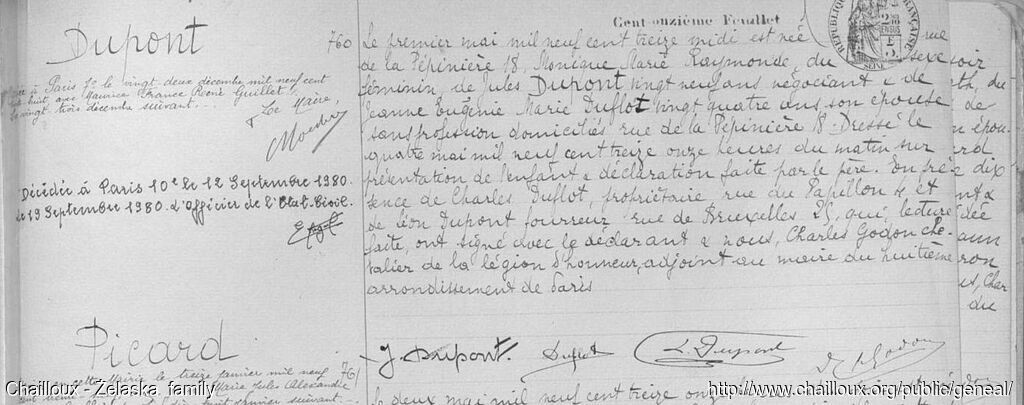 Cent onzième Feuillet
RÉPUBLIQUE FRANÇAISE
SEINE
Dupont
760
à Paris le vingt deux décembre mil neuf cent
huit, avec Maurice France René Guillet
le vingt trois décembre suivant
Le Maire,
Décédée à Paris 10e le 12 Septembre 1980.
Le 19 Septembre 1980. L'Officier de l'Etat-Civil.
Le premier mai mil neuf cent treize midi est née rue
de la Pépinière 18, Monique Marie Raymonde, du sexe
féminin, de Jules DUPONT vingt neuf ans négociant & de
Jeanne Eugénie Marie Duflot vingt quatre ans son épouse
sans profession domiciliés rue de la Pépinière 18. Dressé le
quatre mai mil neuf cent treize onze heures du matin sur
présentation de l'enfant & déclaration faite par le père. En pré=
sence de Charles Duflot, propriétaire, rue du Papillon 4 et
de Léon Dupont fourreur rue de Bruxelles 25, qui, lecture
faite, ont signé avec le déclarant & nous, Charles Godon che=
valier de la légion d'honneur, adjoint au maire du huitième
arrondissement de Paris
J. Dupont
Duflot
L. Dupont
Godon
Picard
761
le treize janvier mil neuf
Marie Jules Alexandre
janvier suivant
Le deux mai mil neuf cent treize onze
Chailloux - Zelaska family
http://www.chailloux.org/public/geneal/